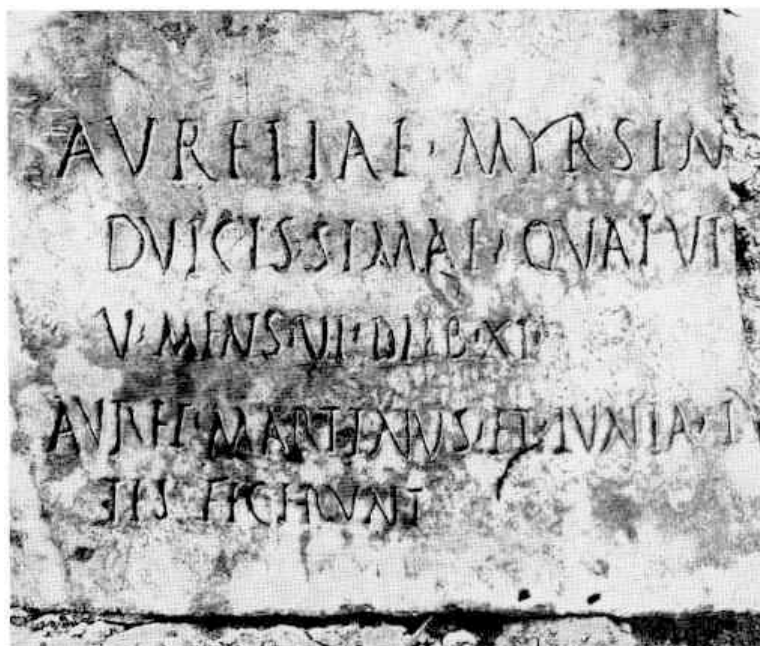 AVRELIAE · MYRSIN
DVLCISSIMAE · QVAE VI
V · MENS · VI · DIEB · XI
AVREL · MARTINVS · ET · IVNIA ·
FECERVNT